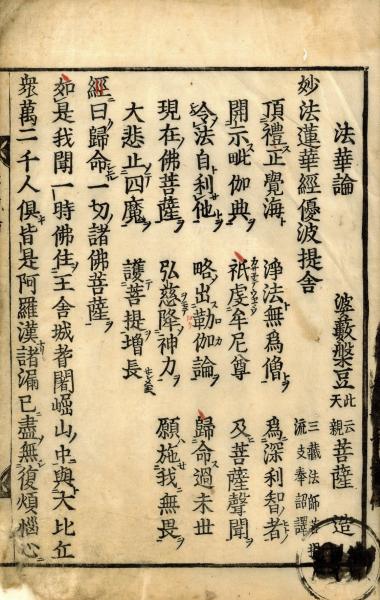 法華論　婆藪槃豆此云天親菩薩造
三藏法師菩提流支奉詔譯
妙法蓮華經優波提舍
頂禮正覺海　淨法無為僧　為深利智者
開示毗伽典　祇虔牟尼尊　及菩薩聲聞
令法自利他　略出勒伽論　歸命過未世
現在佛菩薩　弘慈降神力　願施我無畏
大悲止四魔　護菩提增長
經曰歸命一切諸佛菩薩
如是我聞一時佛住王舍城耆闍崛山中與大比丘
衆萬二千人俱皆是阿羅漢諸漏已盡無復煩惱心